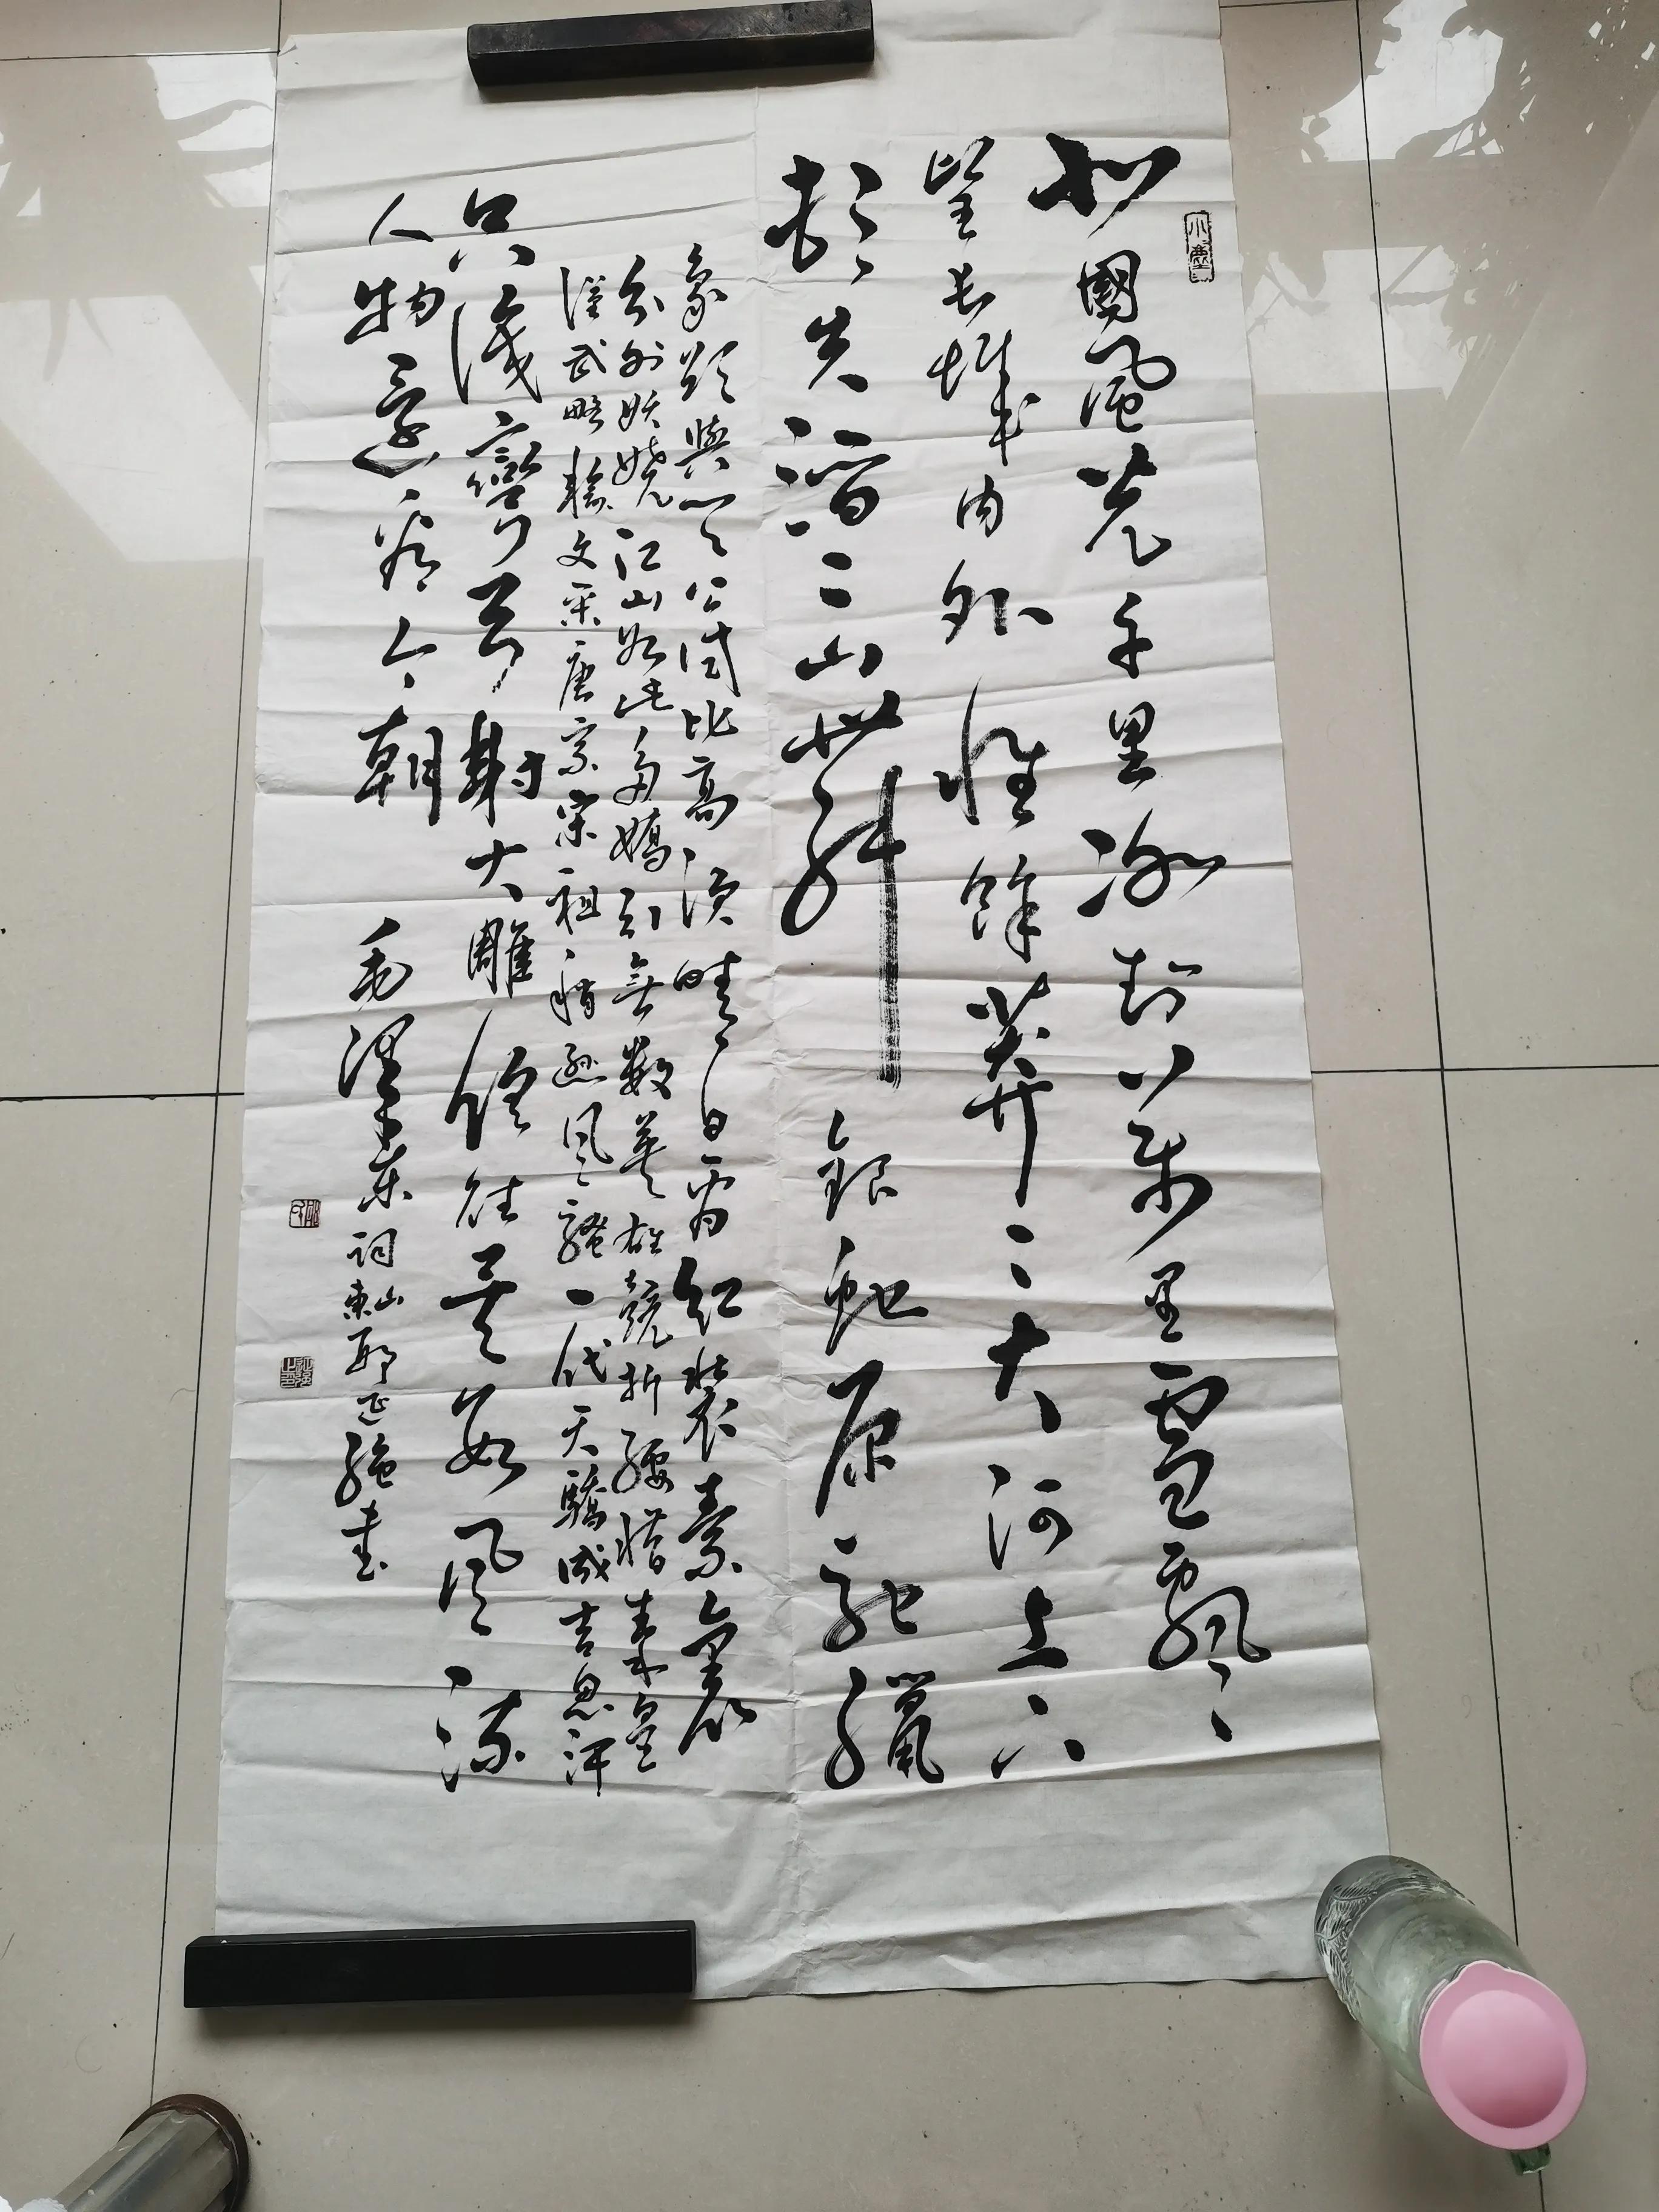 北國風光千里冰封萬里雪飄
望長城内外惟餘莽〻大河上下
頓失滔〻山舞銀蛇原馳蠟
象欲與天公試比高須晴日看紅裝素裹
分外妖嬈江山如此多嬌引無數英雄競折腰惜秦皇
漢武略輸文采唐宗宋祖稍遜風騷一代天驕成吉思汗
只識彎弓射大雕俱往矣數風流
人物還看今朝 毛澤東詞 山東 書